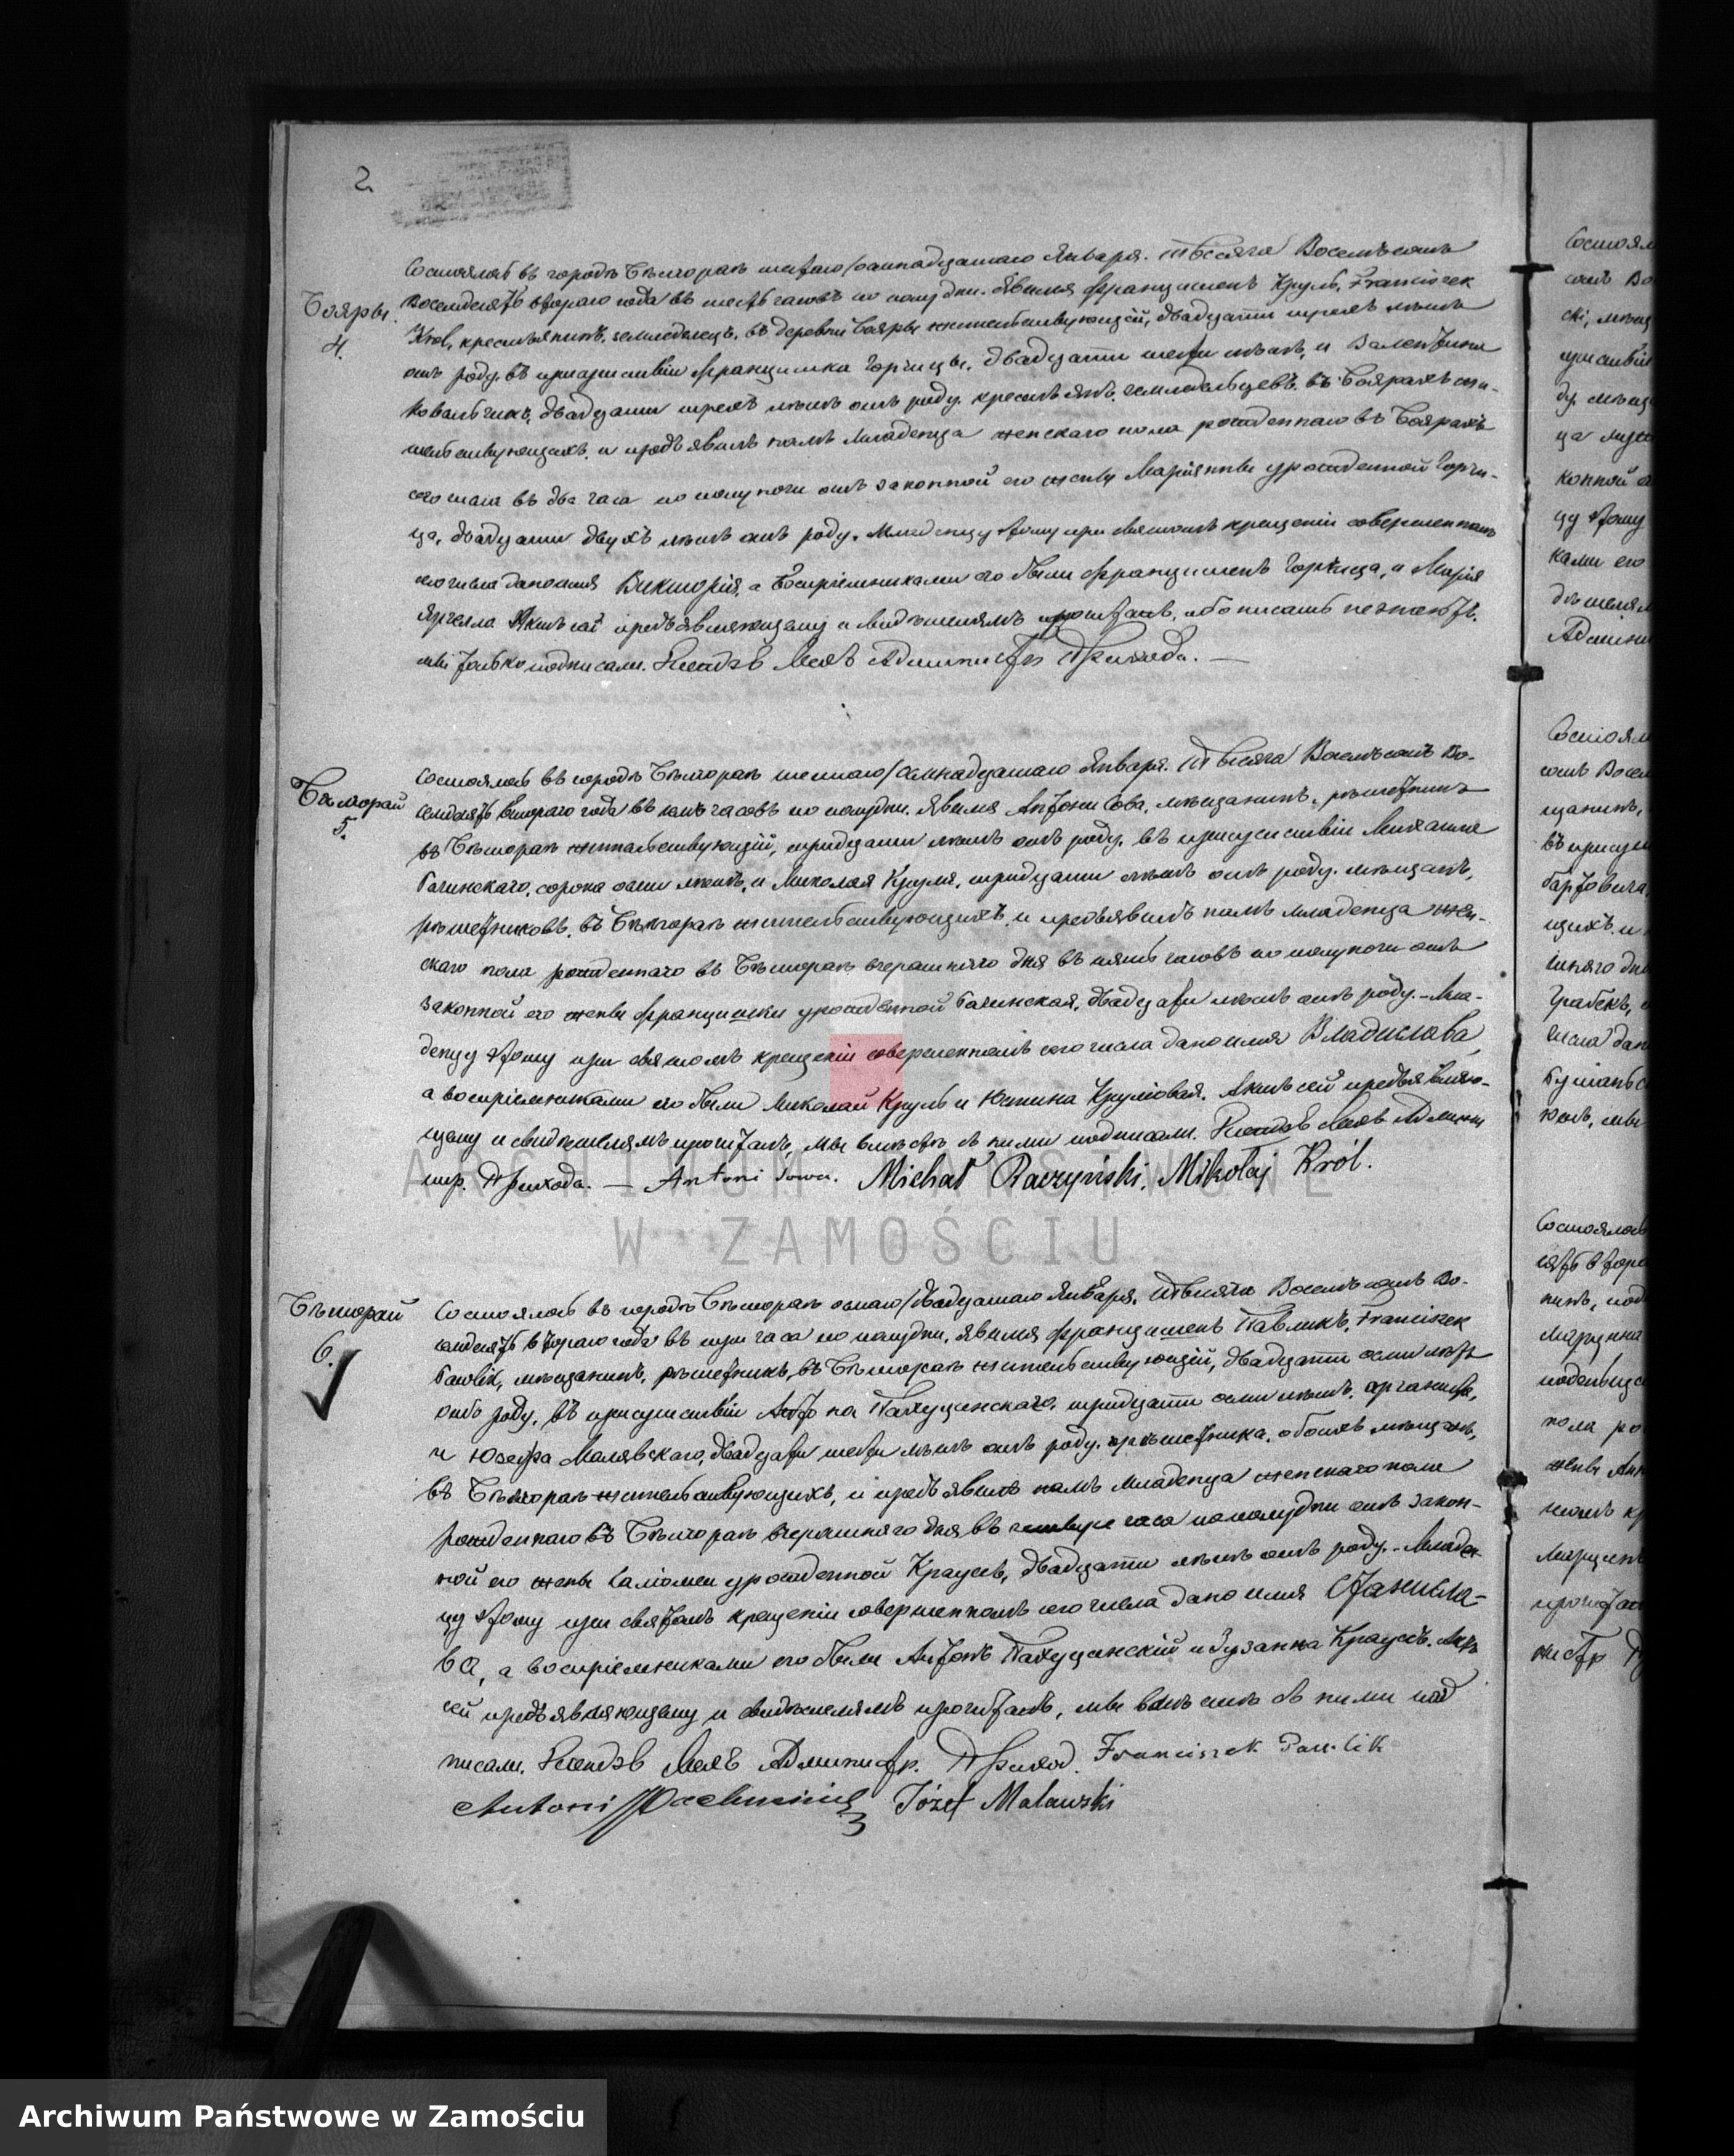 2
Бояры.
4.
Состоялось въ городѣ Бѣлгораѣ шестаго/осмнадцатаго Января. Тысяча Восемьсотъ
Восемдесятъ втораго года въ шесть часовъ по полудни. Явился Францишекъ Круль, Franciszek
Król, крестьянинъ, земледелецъ, въ деревни Бояры жительствующій, двадцати трехъ лѣтъ
отъ роду, въ присутствіи Францишка Горчицы, двадцати шести лѣтъ, и Валентина
Ковальчика, двадцати трехъ лѣтъ отъ роду, крестьянъ, земледельцевъ, въ Боярахъ жи-
тельствующихъ, и предъявилъ намъ младенца женскаго пола рожденнаго въ Боярахъ
сего числа въ два часа по полуночи отъ законной его жены Маріянны урожденной Горчи-
ца, двадцати двухъ лѣтъ отъ роду. Младенцу этому при святомъ крещеніи совершенномъ
сего числа дано имя Викторія, а воспріемниками его были Францишекъ Горчица, и Марія
Актъ сей предъявляющему и свидѣтелямъ прочитанъ, ибо писать не знаютъ,
мы только подписали. Ксендзъ Адмнистр Прихода. —
Бѣлгорай
5.
Состоялось въ городѣ Бѣлгораѣ шестаго/осмнадцатаго Января. Тысяча Восемьсотъ Во-
семдесятъ втораго года въ пять часовъ по полудни. Явился Антони Сова, мѣщанинъ, рѣшетникъ
въ Бѣлгораѣ жительствующій, тридцати лѣтъ отъ роду, въ присутствіи Михаила
Рачинскаго, сорока осми лѣтъ, и Миколая Круля, тридцати лѣтъ отъ роду, мѣщанъ,
рѣшетниковъ, въ Бѣлгораѣ жительствующихъ, и предъявилъ намъ младенца жен-
скаго пола рожденнаго въ Бѣлгораѣ вчерашняго дня въ пять часовъ по полуночи отъ
законной его жены Францишки урожденной Рачинская, двадцати лѣтъ отъ роду. - Мла-
денцу этому при святомъ крещеніи совершенномъ сего числа дано имя Владислава,
а воспріемниками его были Миколай Круль и Юлина Крулёвая. Актъ сей предъявляю-
щему и свидѣтелямъ прочитанъ, мы вмѣстѣ съ ними подписали. Ксендзъ Админи
стр. Прихода. — Antoni Sowa. Michał Raczyński. Mikołaj Król.
Бѣлгорай
6.
Состоялось въ городѣ Бѣлгораѣ осмаго/двадцатаго Января. Тысяча Восемьсотъ Во-
семдесятъ втораго года въ три часа по полудни. Явился Францишекъ Павликъ, Franciszek
Pawlik, мѣщанинъ, рѣшетникъ, въ Бѣлгораѣ жительствующій, двадцати осми лѣтъ
отъ роду, въ присутствіи Антона Пахуцинскаго, тридцати осми лѣтъ, органиста,
и Юзефа Малявскаго, двадцати шести лѣтъ отъ роду, рѣшетника, обоихъ мѣщанъ,
въ Бѣлгораѣ жительствующихъ, и предъявилъ намъ младенца женскаго пола
рожденнаго въ Бѣлгораѣ вчерашняго дня въ четыре часа по полудни отъ закон-
ной его жены Саломеи урожденной Краусъ, двадцати лѣтъ отъ роду. - Младен-
цу этому при святомъ крещеніи совершенномъ сего числа дано имя Станисла-
ва, а воспріемниками его были Антонъ Пахуцинскій и Зузанна Краусъ. Актъ
сей предъявляющему и свидѣтелямъ прочитанъ, мы вмѣстѣ съ ними под
писали. Ксендзъ Админи стр. Приход. Franciszek Pawlik
Antoni Józef Malawski
ARCHIWUM PAŃSTWOWE
W ZAMOŚCIU
Archiwum Państwowe w Zamościu